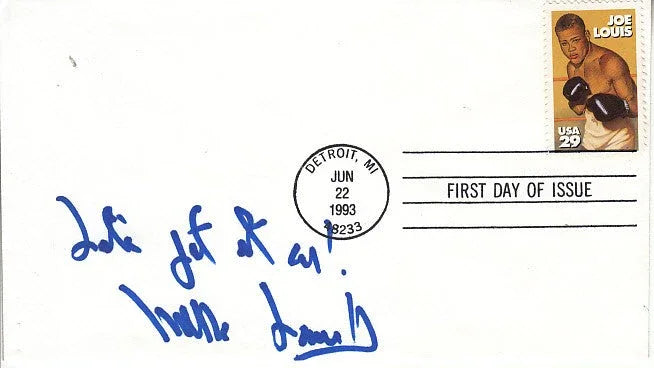 JOE
LOUIS
USA
29
DETROIT, MI
JUN
22
1993
48233
FIRST DAY OF ISSUE
Let's get it on!
Mills Lane